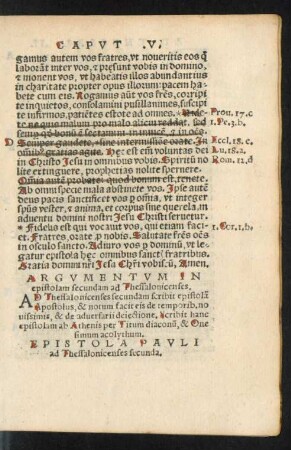 CAPVT V.
gamus autem vos fratres, vt noueritis eos q̃
laborãt inter vos, & presunt vobis in domino,
& monent vos, vt habeatis illos abundantius
in charitate propter opus illorum: pacem habete
cum eis. Rogamus aũt vos frẽs, corripite
inquietos, consolamini pusillanimes, suscipite
infirmos, patiẽtes estote ad omnes. Videte
ne quis malum pro malo alicui reddat, sed
semp qđ bonũ est sectamini in inuicẽ, & in oẽs
D Semper gaudete, sine intermissione orate. In
omnibꝰ gratias agite. Hec est em̃ voluntas dei
in Christo Jesu in omnibus vobis. Spiritũ nolite
extinguere, prophetias nolite spernere.
Omnia autẽ probate: quod bonum est, tenete.
Ab omni specie mala abstinete vos. Ipse autẽ
deus pacis sanctificet vos p omnia, vt integer
spũs vester, & anima, et corpus sine querela in
aduentu domini nostri Jesu Christi seruetur.
* Fidelis est qui vocauit vos, qui etiam faciet.
Fratres, orate p nobis. Salutate frẽs oẽs
in osculo sancto. Adiuro vos p dominũ, vt legatur
epistola hec omnibus sanctis fratribus.
Gratia domini nr̃i Jesu Chr̃i vobiscũ, Amen.
ARGVMENTVM IN
epistolam secundam ad Thessalonicenses.
AD Thessalonicenses secundam scribit epistolã
Apostolus, & notum facit eis de temporibꝰ nouissimis,
& de aduersarii deiectione. scribit hanc
epistolam ab Athenis per Titum diaconũ, & Onesimum
acolythum.
EPISTOLA PAVLI
ad Thessalonicenses secunda.
Prou. 17. c
1. Pe. 3. b.
Eccl. 18. c.
Lu. 18. a.
Rom. 12. d
1. Cor. 1. b.